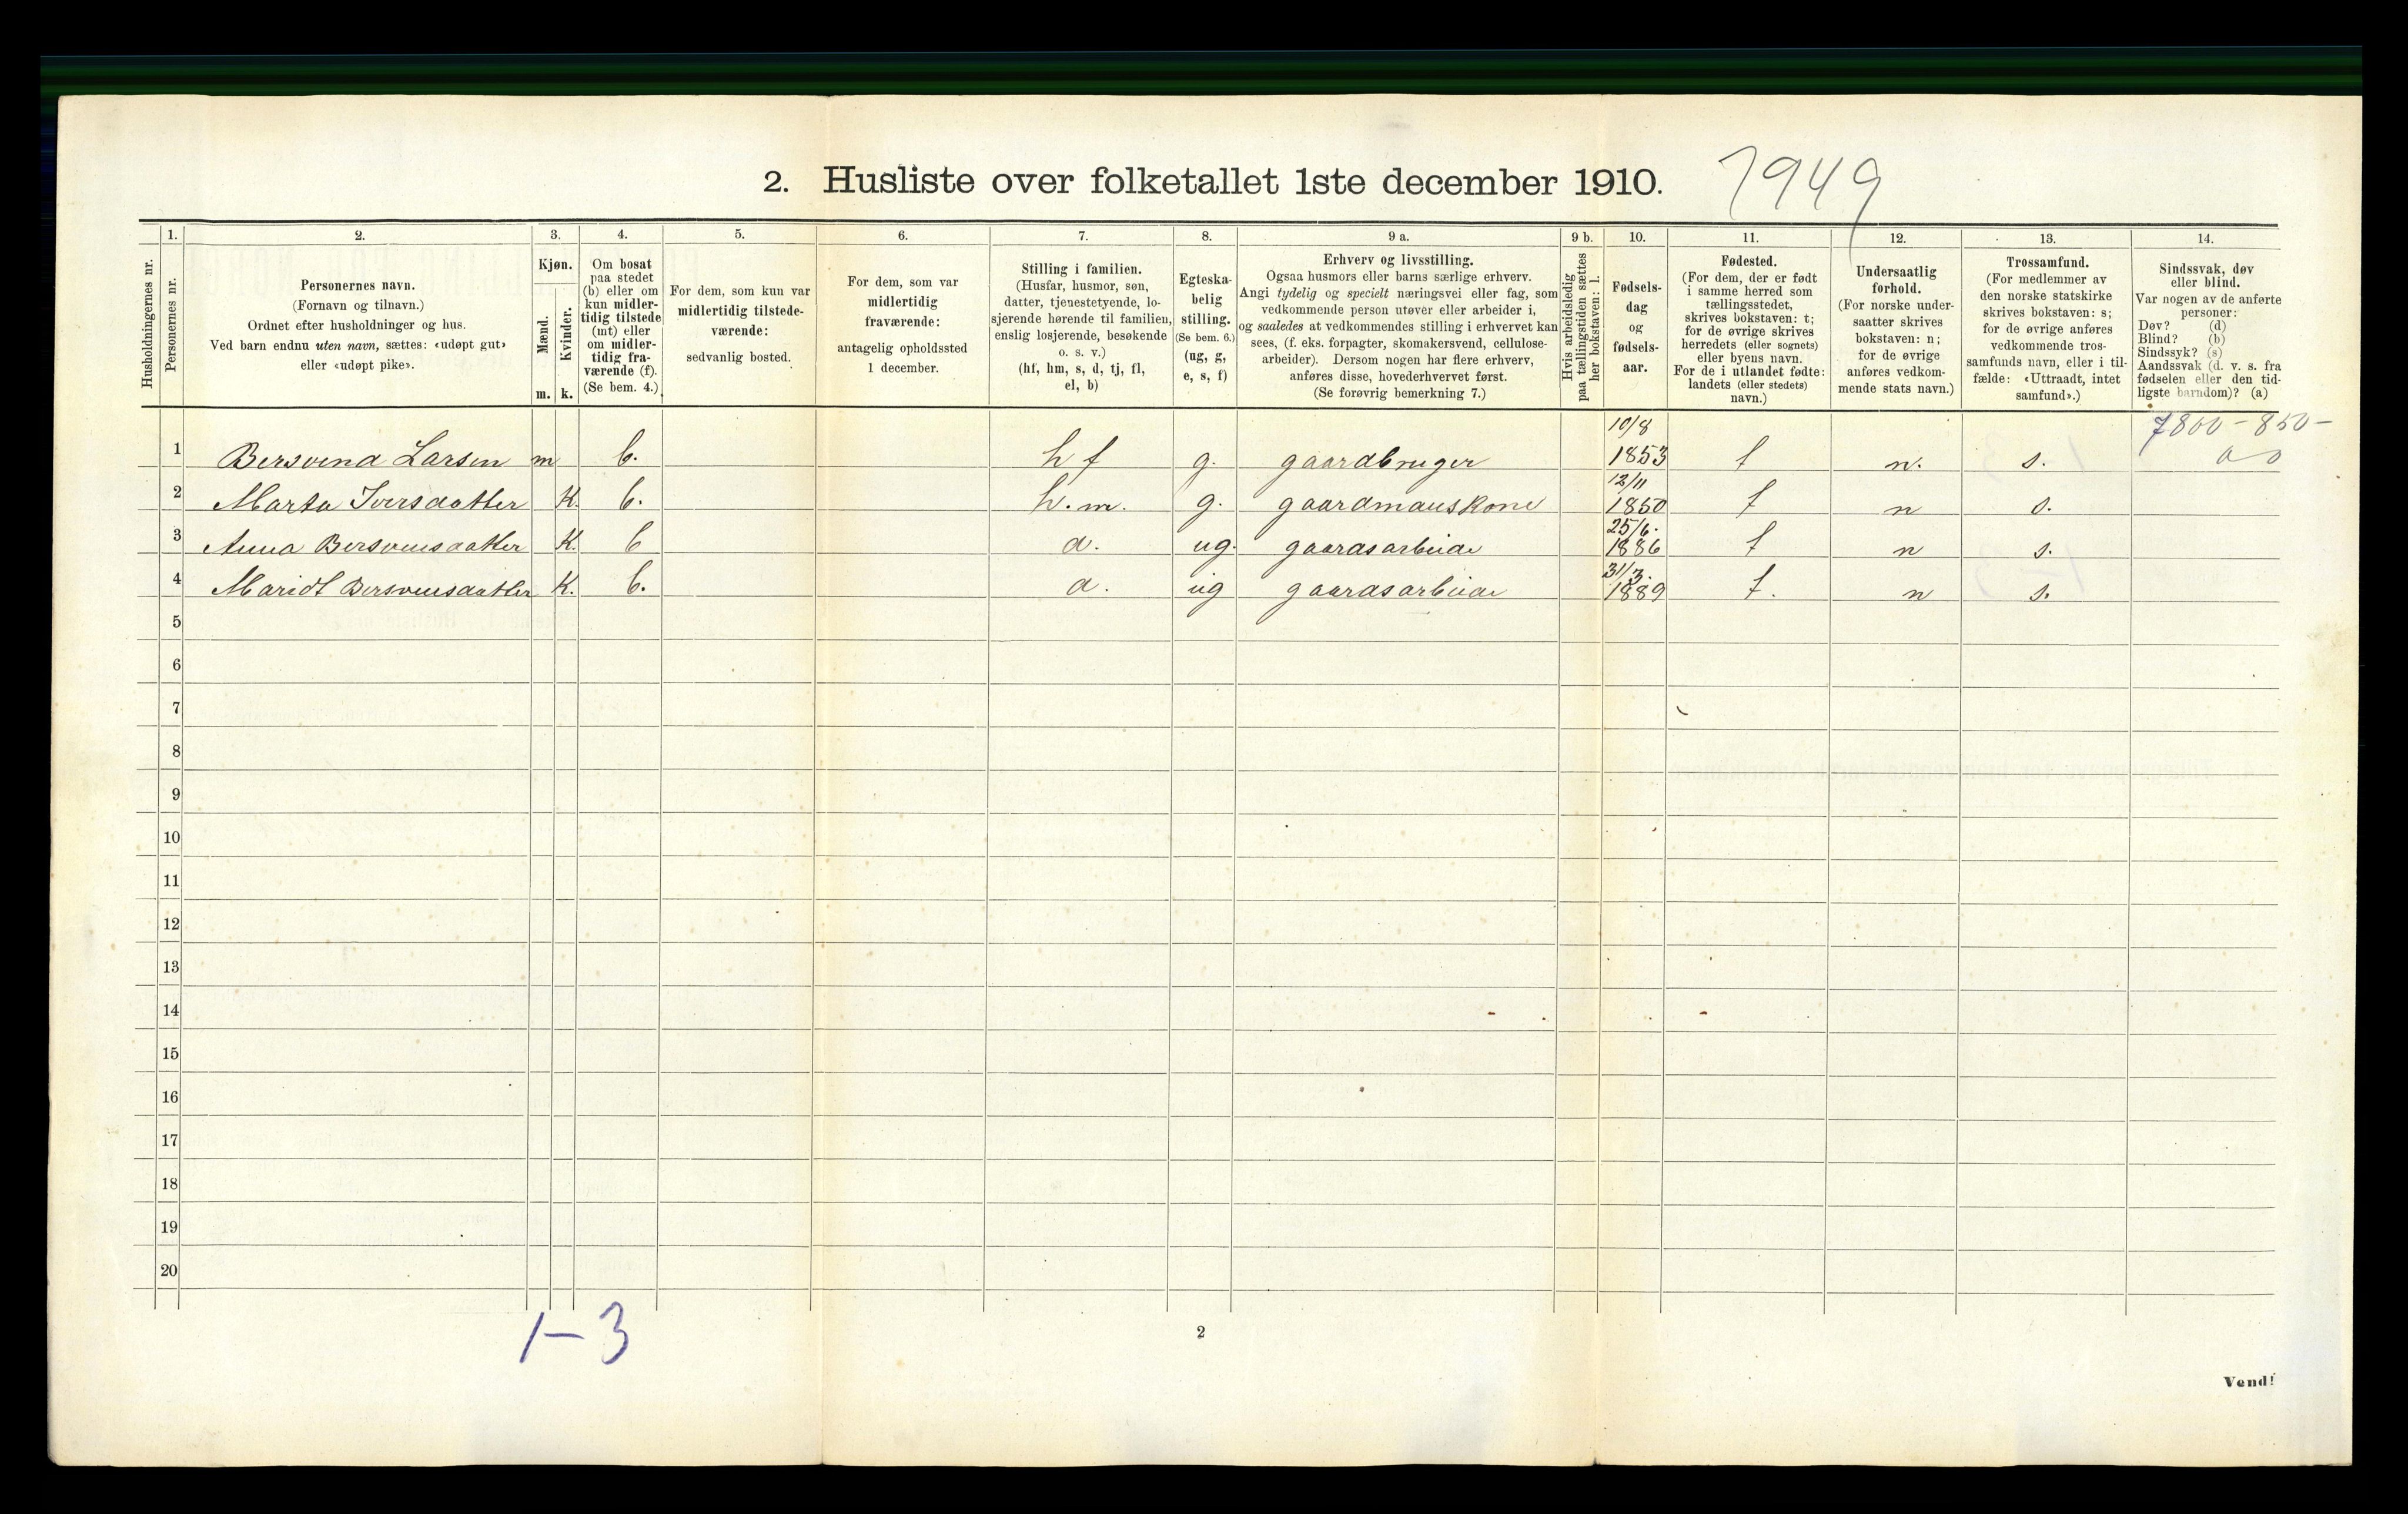 2. Husliste over folketallet 1ste december 1910. 7949
1. 2. 3. 4. 5. 6. 7. 8. 9 a. 9 b. 10. 11. 12. 13. 14.
Husholdningernes nr.
Personernes nr.
Personernes navn.
(Fornavn og tilnavn.)
Ordnet efter husholdninger og hus.
Ved barn endnu uten navn, sættes: «udøpt gut»
eller «udøpt pike».
Kjøn.
Mænd.
Kvinder.
m. k.
Om bosat
paa stedet
(b) eller om
kun midler-
tidig tilstede
(mt) eller
om midler-
tidig fra-
værende (f).
(Se bem. 4.)
For dem, som kun var
midlertidig tilstede-
værende:
sedvanlig bosted.
For dem, som var
midlertidig
fraværende:
antagelig opholdssted
1 december.
Stilling i familien.
(Husfar, husmor, søn,
datter, tjenestetyende, lo-
sjerende hørende til familien,
enslig losjerende, besøkende
o. s. v.)
(hf, hm, s, d, tj, fl,
el, b)
Egteska-
belig
stilling.
(Se bem. 6.)
(ug, g,
e, s, f)
Erhverv og livsstilling.
Ogsaa husmors eller barns særlige erhverv.
Angi tydelig og specielt næringsvei eller fag, som
vedkommende person utøver eller arbeider i,
og saaledes at vedkommendes stilling i erhvervet kan
sees, (f. eks. forpagter, skomakersvend, cellulose-
arbeider). Dersom nogen har flere erhverv,
anføres disse, hovederhvervet først.
(Se forøvrig bemerkning 7.)
Hvis arbeidsledig
paa tællingstiden sættes
her bokstaven: l.
Fødsels-
dag
og
fødsels-
aar.
Fødested.
(For dem, der er født
i samme herred som
tællingsstedet,
skrives bokstaven: t;
for de øvrige skrives
herredets (eller sognets)
eller byens navn.
For de i utlandet fødte:
landets (eller stedets)
navn.)
Undersaatlig
forhold.
(For norske under-
saatter skrives
bokstaven: n;
for de øvrige
anføres vedkom-
mende stats navn.)
Trossamfund.
(For medlemmer av
den norske statskirke
skrives bokstaven: s;
for de øvrige anføres
vedkommende tros-
samfunds navn, eller i til-
fælde: «Uttraadt, intet
samfund».)
Sindssvak, døv
eller blind.
Var nogen av de anførte
personer:
Døv? (d)
Blind? (b)
Sindssyk? (s)
Aandssvak (d. v. s. fra
fødselen eller den tid-
ligste barndom)? (a)
7800-850-
0 0
1 Bersvend Larsen m b. hf g. gaardbruger 10/8 1853 t n. s.
2 Marta Iversdatter K. b. h.m. g. gaardmanskone 12/11 1850 t n s.
3 Anna Bersvensdatter K. b d. ug. gaardsarbeide 25/6. 1886 t n s.
4 Maridt Bersvensdatter K. b. d. ug gaardsarbeide 31/3. 1889 t. n s.
5
6
7
8
9
10
11
12
13
14
15
16
17
18
19
20
1-3
2
Vend!